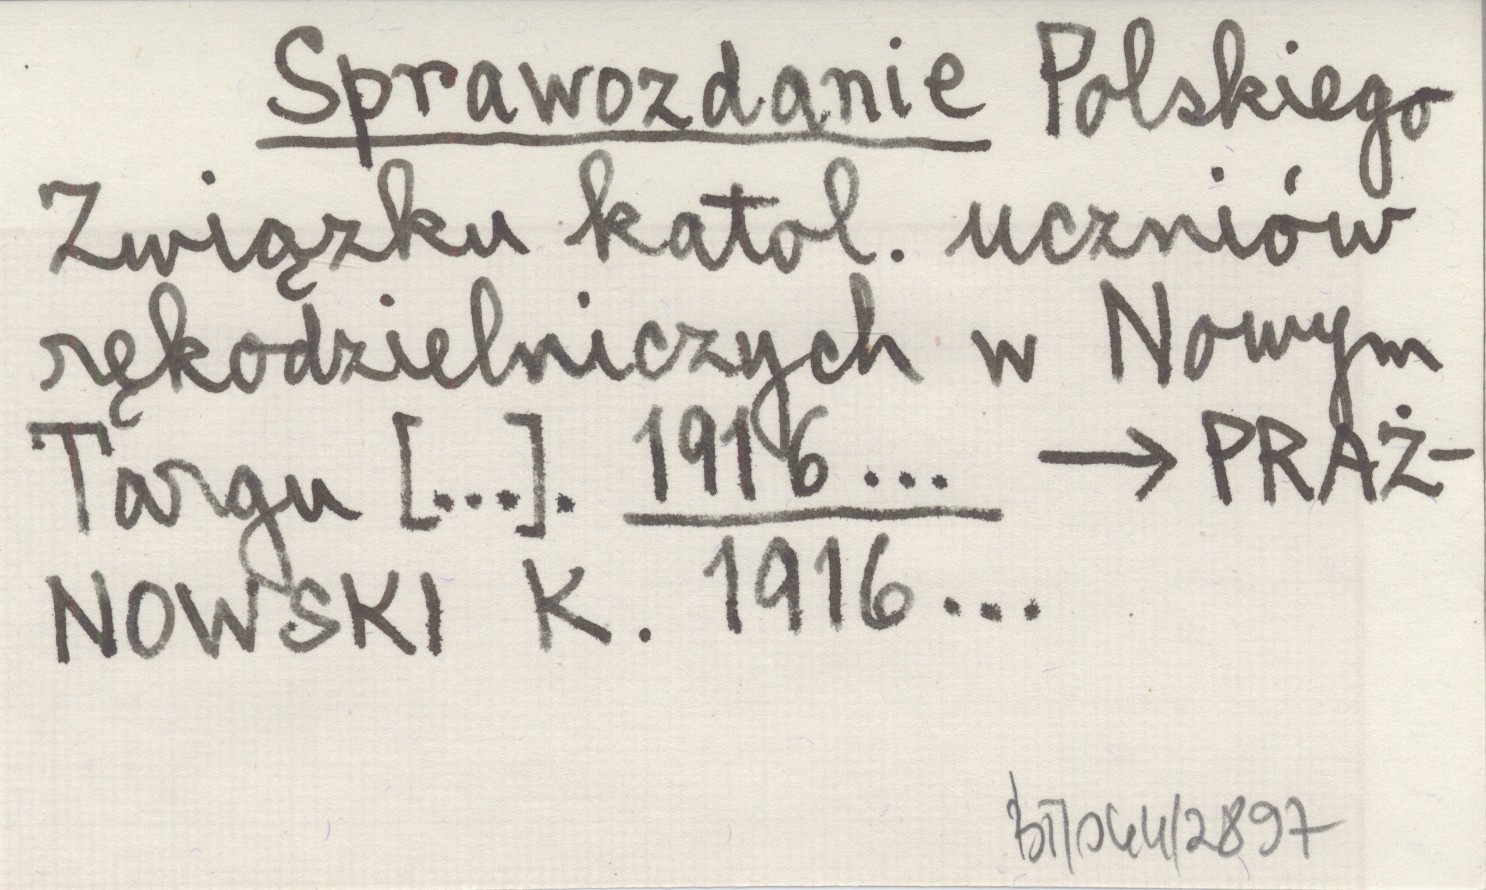 Sprawozdanie Polskiego
Związku katol. uczniów
rękodzielniczych w Nowym
Targu [...]. 1916... → PRAŻ-
NOWSKI K. 1916...
/2897